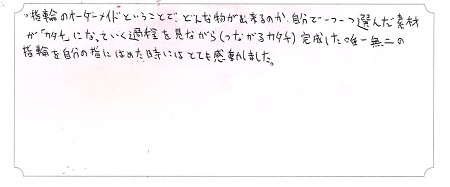 指輪のオーダーメイドということで、どんな物が出来るのか、自分で一つ一つ選んだ素材
が「カタチ」になっていく過程を見ながら(つながるカタチ)完成した唯一無二の
指輪を自分の指にはめた時にはとても感動しました。